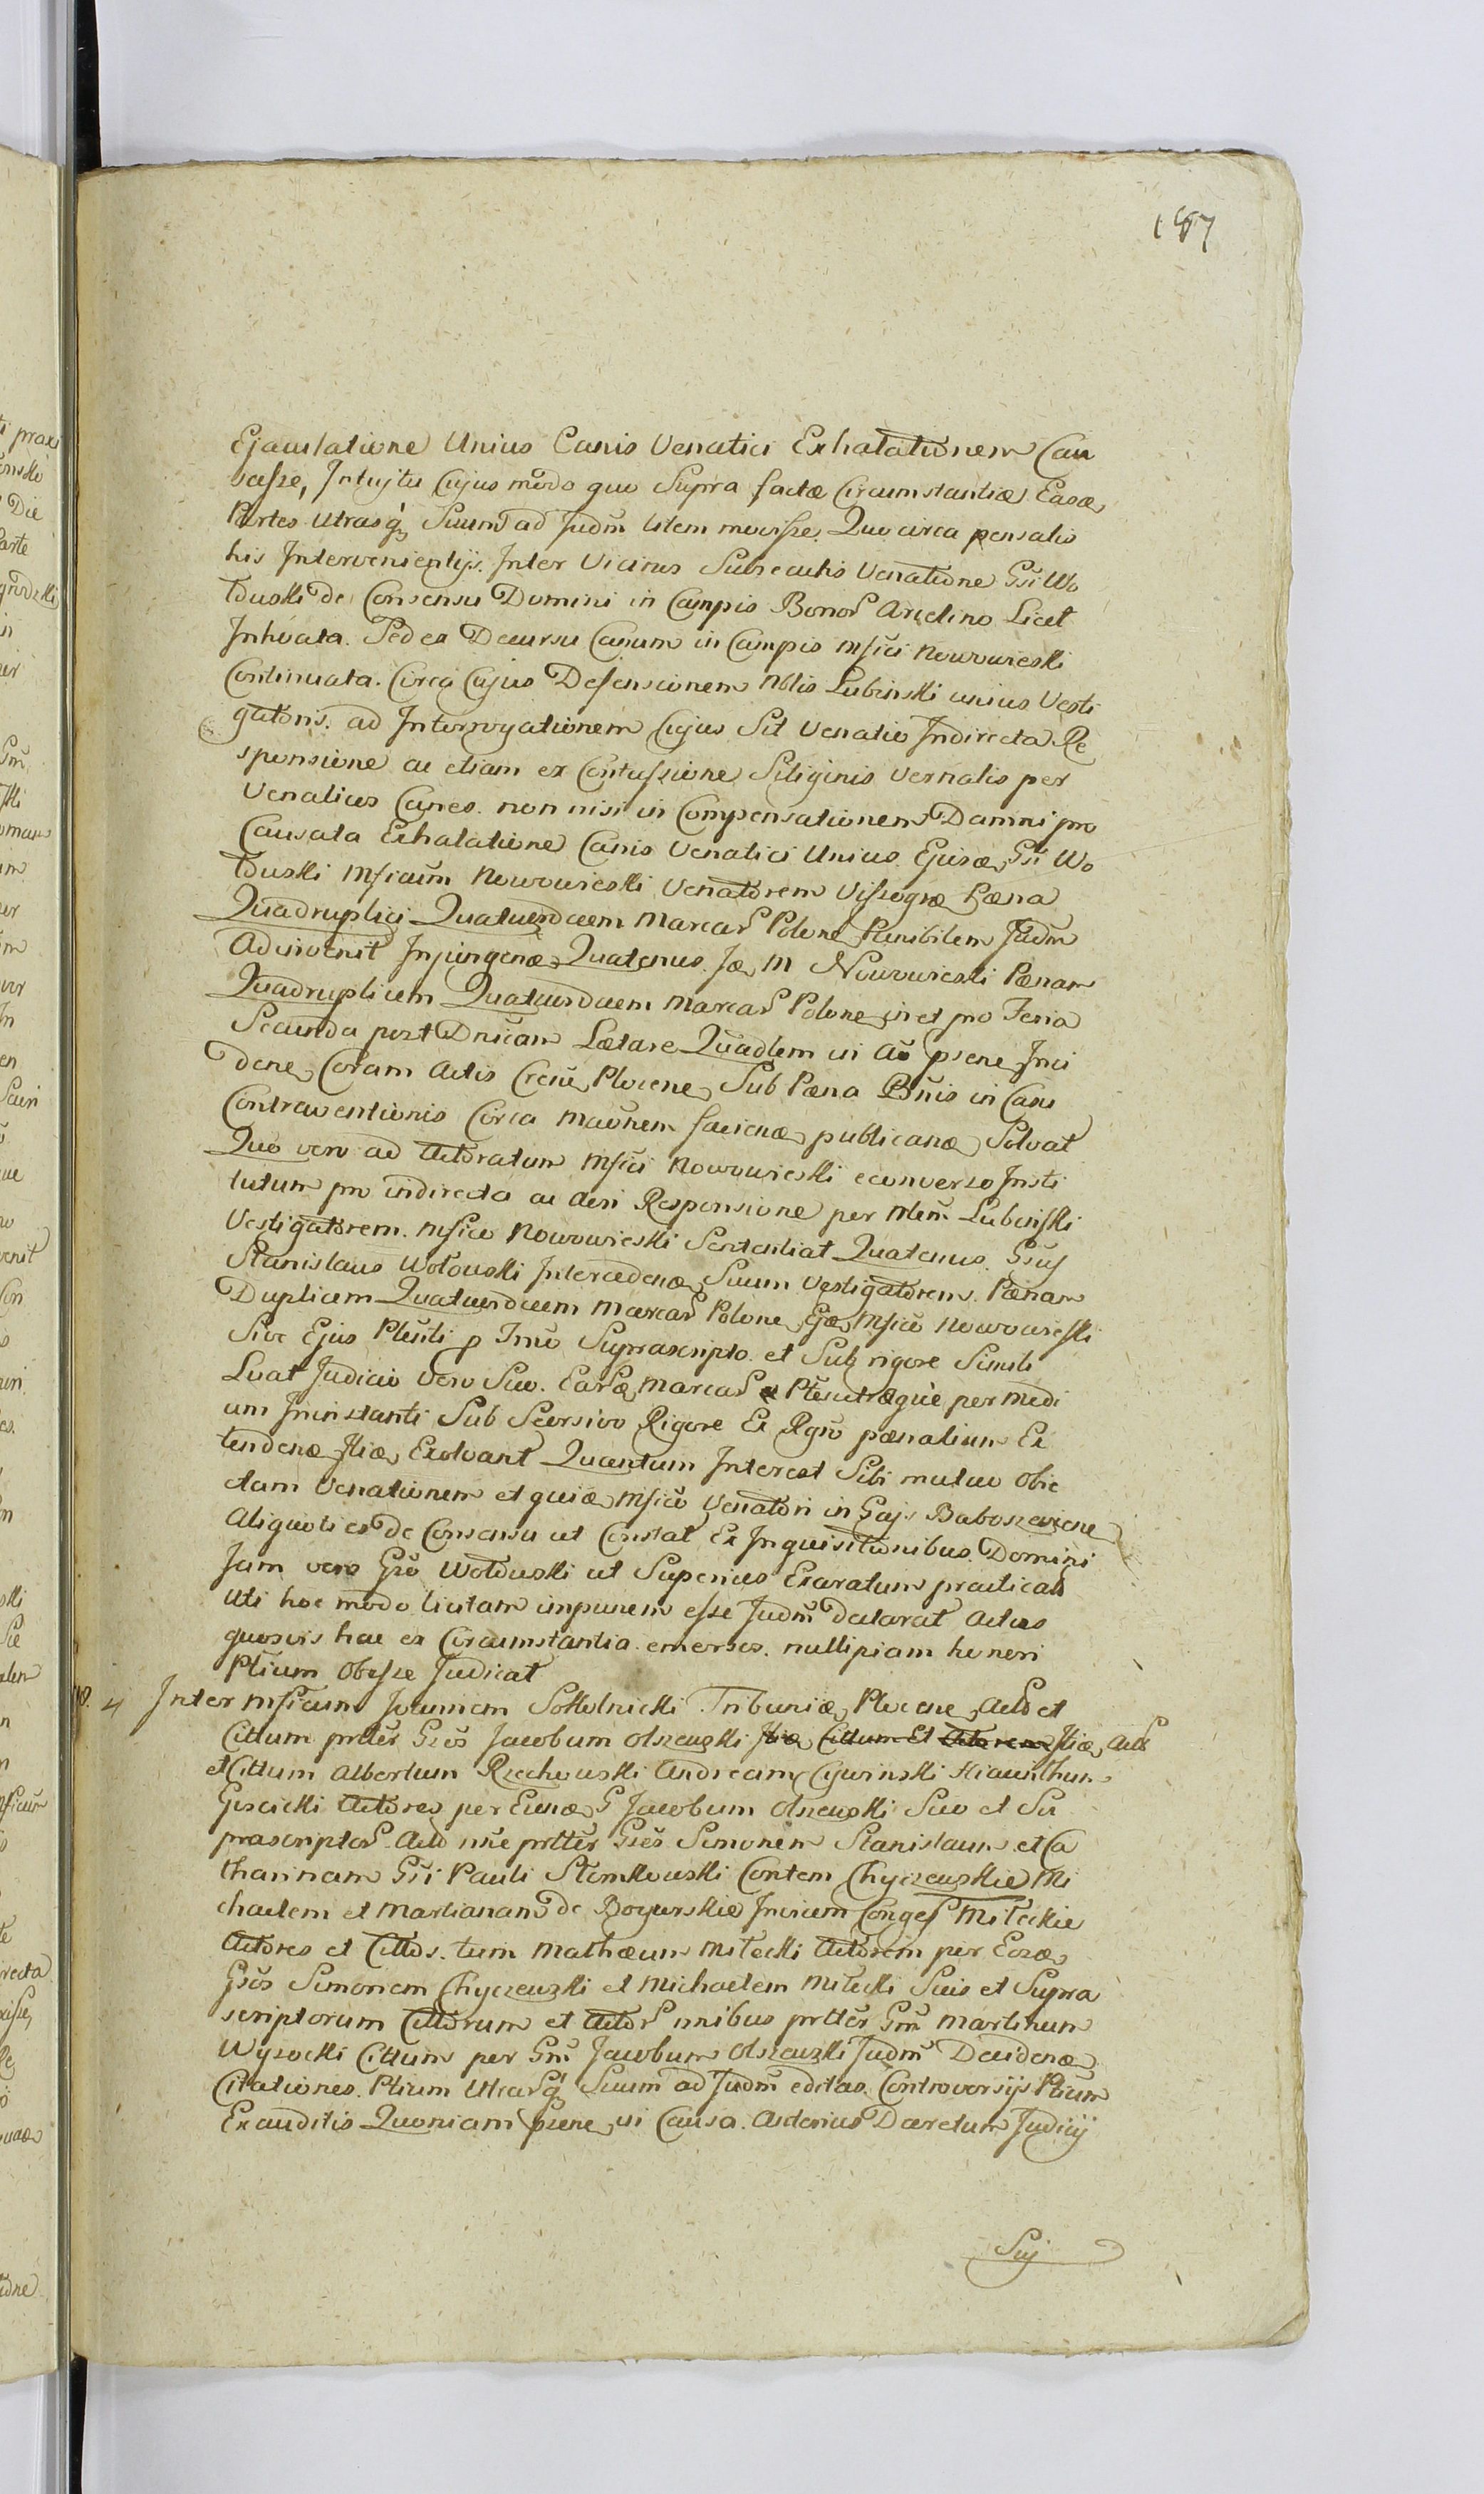 187
Ejaculatione Unius Canis Venatici Exhalationem Cau
sasse, Intuitu Cujus modo quo Supra factæ Circumstantiæ Easæ
Partes Utrasq; Suum ad Judm litem movisse. Quocirca pensatis
his Intervenientijs. Inter Vicinos Subsecutis Venatione Gsi Wo
łduski de Consensu Domini in Campis Bonor Arcelino Licet
Inhoata. Sed ex Decursu Canum in Campis Msici Nowowieski
Continuata. Circa Cujus Defensionem Nblis Lubinski unius Vesti
gatoris. ad Interrogationem Cujus Sit Venatio Indirecta Re
sponsione ac etiam ex Contussione Siliginis vernalis per
Venaticos Canes. non nisi in Compensationem Damni pro
Causata Exhalatione Canis Venatici Unius Ejusæ Gsi Wo
łduski Msicum Nowowieski Venatorem Poena
Quadruplici Quatuordecem Marcar Polone Punibilem Judm
Adinvenit Injungenæ Quatenus. Iæ M Nowowieski Poenam
Quadruplicem Quatuordecem Marcar Polone in et pro Feria
Secunda post Dnicam Lætare Quadlem in Ao psene Inci
dene Coram Actis Crene Plocene Sub Poena Bnis in Casu
Contraventionis Circa Maonem facienæ publicanæ Solvat
Quo vero ad Actoratum Msici Nowowieski econverso Insti
tutum pro indirecta ac Responsione per Nblem Lubinski
Vestigatorem. Msico Nowowieski Sententiat Quatenus. Gsus
Stanislaus Wołowski Intercedenæ Suum Vestigatorem. Poenam
Duplicem Quatuordecem Marcar Polone Ejæ Msico Nowowieski
Sive Ejus Plenti p Tmo Suprascripto et Sub rigore Simili
Luat Judicio Vero Suo. Earæ Marcar Ptesutræque per medi
um Ininstanti Sub Seorsivo Rigore Ex Rgro poenalium Ex
tendenæ Iliæ Exolvant Quantum Interest Sibi mutuo Obie
ctam Venationem et quiæ Msico Venatori in Gajs Baboszewiene
Aliquoties de Consensu ut Constat Ex Inquisitionibus Domini
Jam vero Gso Wołduski ut Superius Exaratum practicatæ
Uti hoc modo licitam impunem esse Judm Declarat Actus
quosvis hac ex Circumstantia emersos. nullipiam honeri
Ptium Obesse Judicat
4 Inter Msicum Joannem Sokolnicki Tribuniæ Plocene Actd et
Cittum prtter Gsos Jacobum Olszewski Iliæ Cittum Et Actorem Iliæ Actd
et Cittum Albertum Rzechowski Andream Cywinski Hiacinthum
Goscicki Actores per Eunæ G Jacobum Olszewski Suo et Su
prascriptor Actd nne prtter Gsos Simonem Stanislaum et Ca
tharinam Gsi Pauli Słomkowski Contem Chyczewskie Mi
chaelem et Martianam de Boyurskie Invicem Conges Miłeckie
Actores et Cittos. tum Mathæum Miłecki Actorem per Eosæ
Gsos Simonem Chyczewski et Michaelem Miłecki Suis et Supra
scriptorum Cittorum et Actor nnibus prtter Gsm Martinum
Wysocki Cittum per Gsm Jacobum Olszewski Judm Decidenæ
Citationes. Ptium Utrarq; Suum ad Judm editas. Controversijs Ptium
Exauditis Quoniam psene in Causa. Anterius Decretum Judicij
Sui